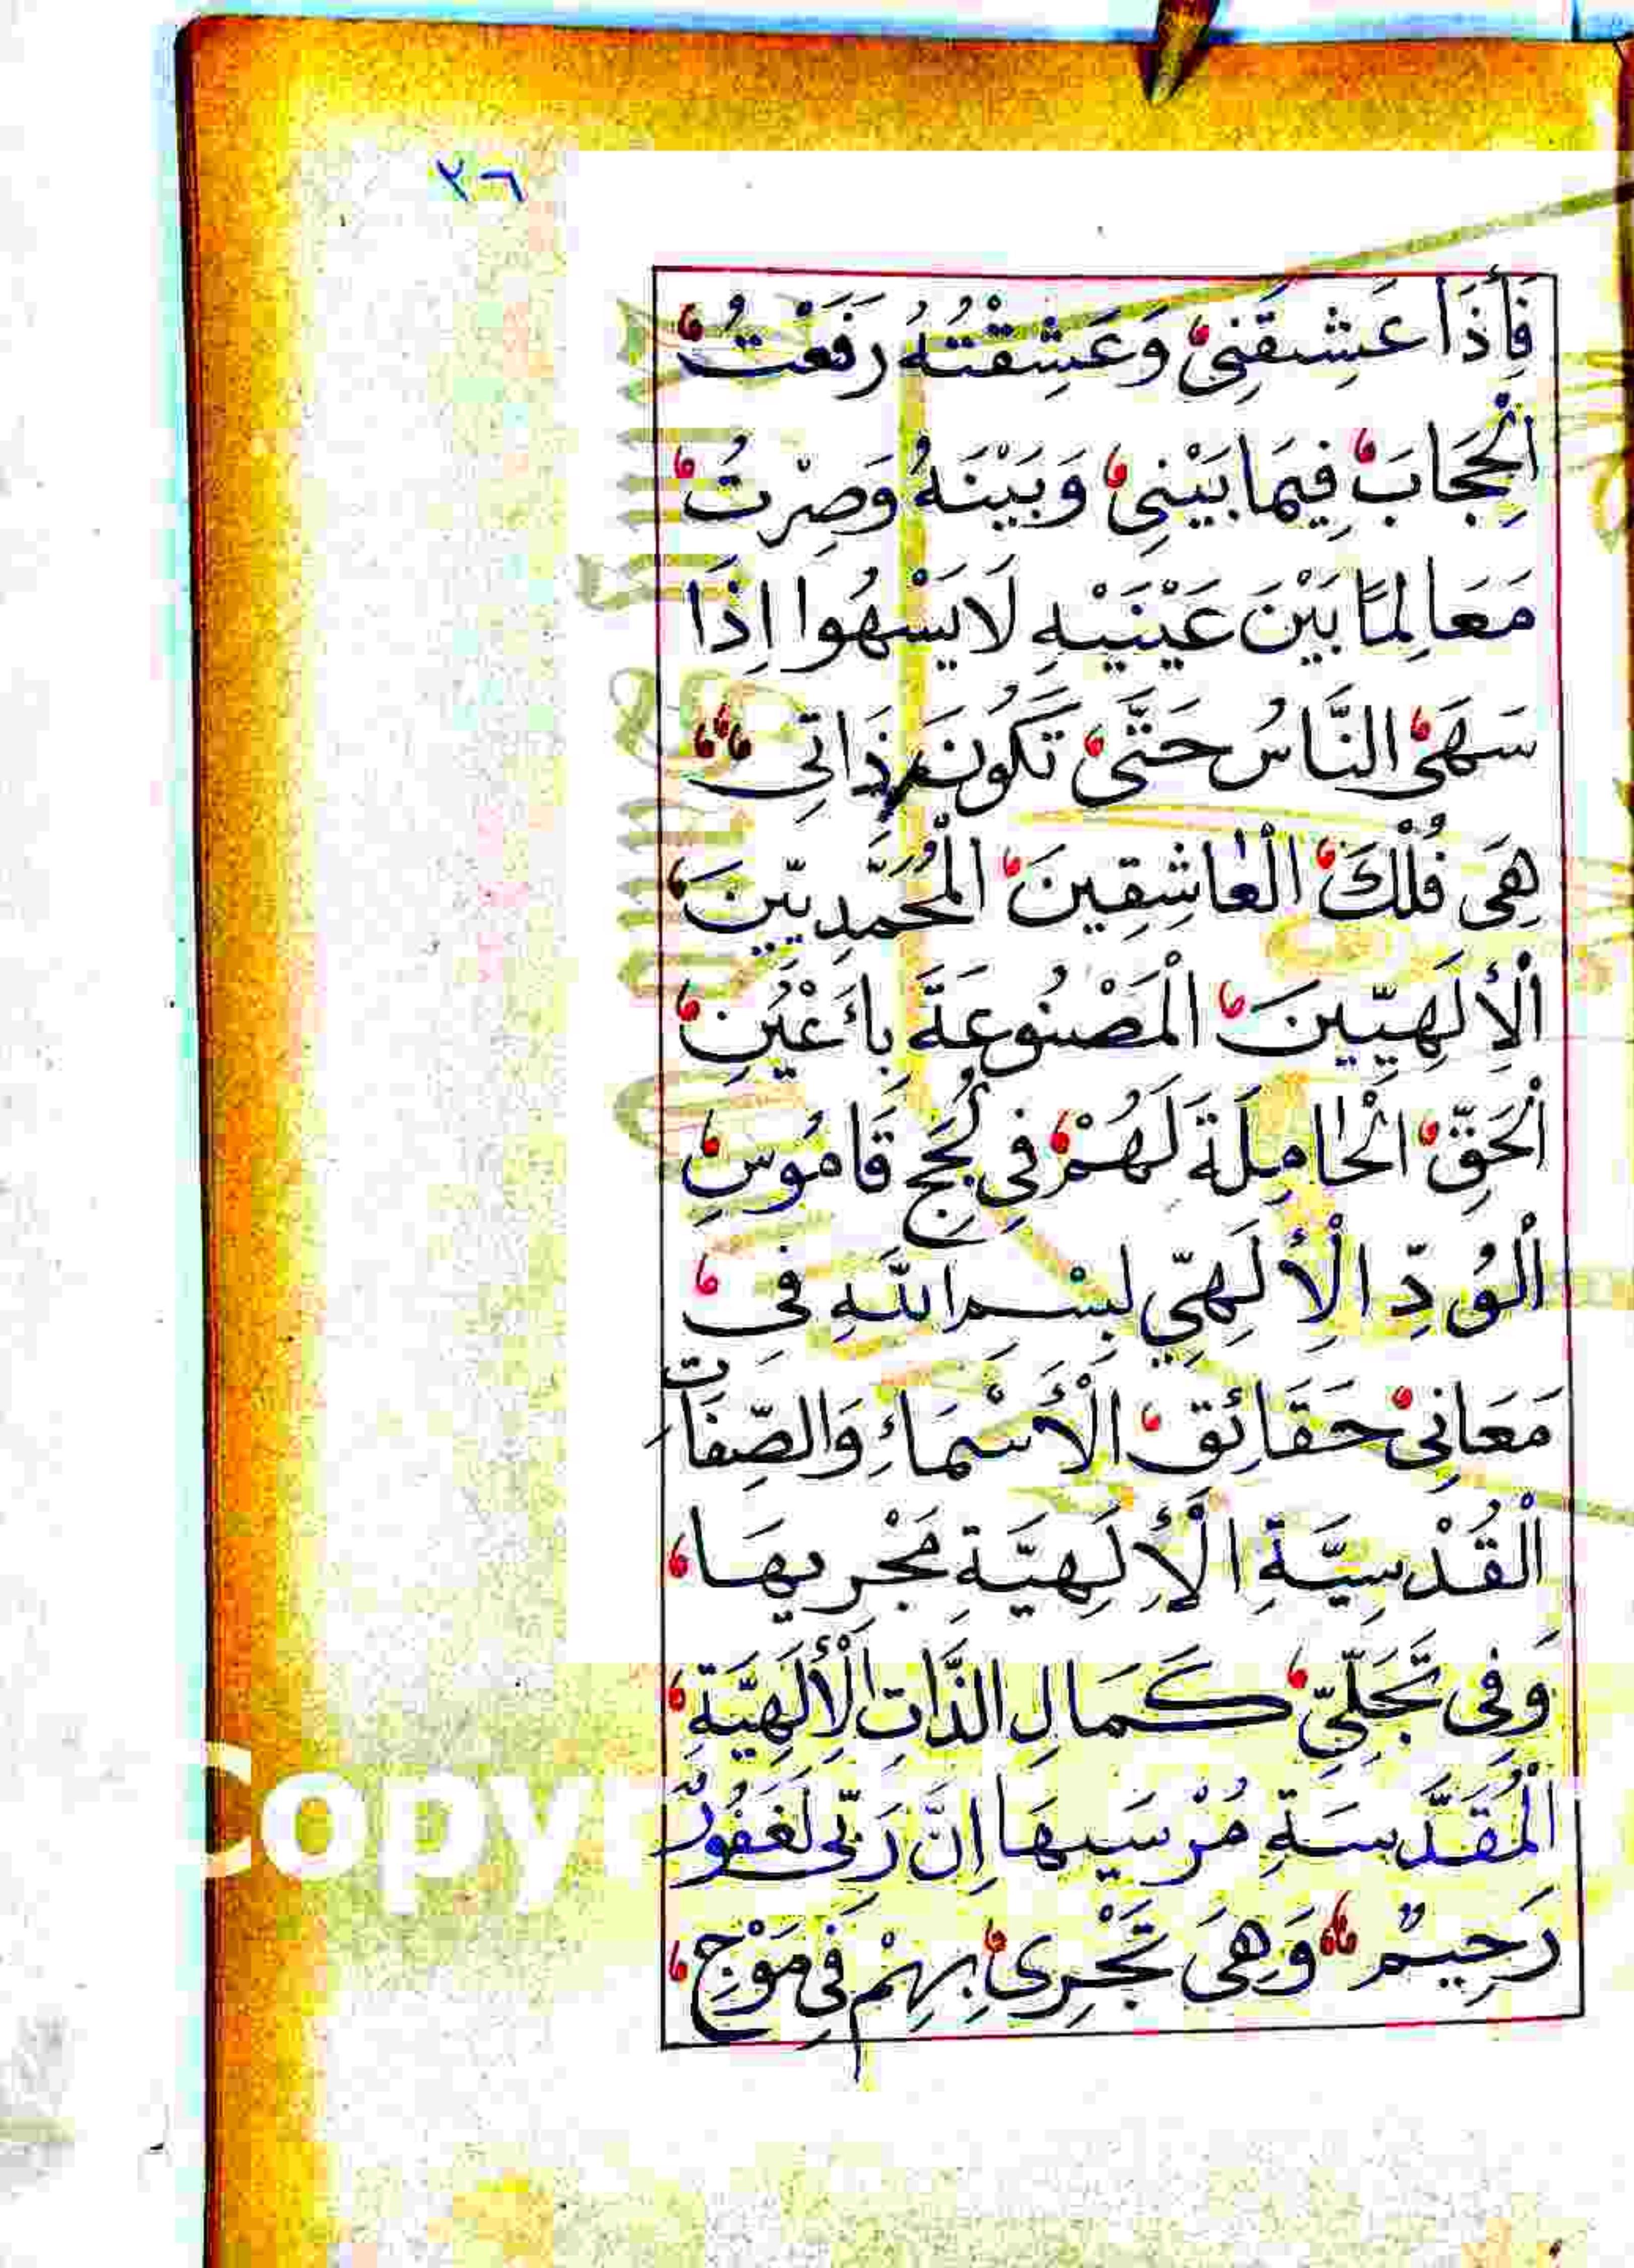 ٢٦
فَإِذَا عَشِقَنِى وَعَشِقْتُهُ رَفَعْتُ
الْحِجَابَ فِيمَا بَيْنِى وَبَيْنَهُ وَصِرْتُ
مَعَالِمًا بَيْنَ عَيْنَيْهِ لَا يَسْهُوا إِذَا
سَهَى النَّاسُ حَتَّى تَكُونَ ذَاتِى
هِىَ فُلْكَ الْعَاشِقِينَ الْمُحَمَّدِيّينَ
الْأِلَهِيّينَ الْمَصْنُوعَةَ بِأَعْيُنِ
الْحَقِّ الْحَامِلَةَ لَهُمْ فِى لُجَجِ قَامُوسِ
الْوُدِّ الْأِلَهِيّ لبِسْمِ اللَّهِ فِى
مَعَانِى حَقَائِقِ الْأَسْمَاءِ وَالصِّفَاتِ
الْقُدْسِيَّةِ الْأِلَهِيَّةِ مَجْرِيهَا
وَفِى تَجَلِّيّ كَمَالِ الذَّاتِ الْأِلَهِيَّةِ
الْمُقَدَّسَةِ مُرْسَيهَا إِنَّ رَبِّى لَغَفُورٌ
رَحِيمٌ وَهِىَ تَجْرِى بِهِمْ فِى مَوْجِ
Copyr